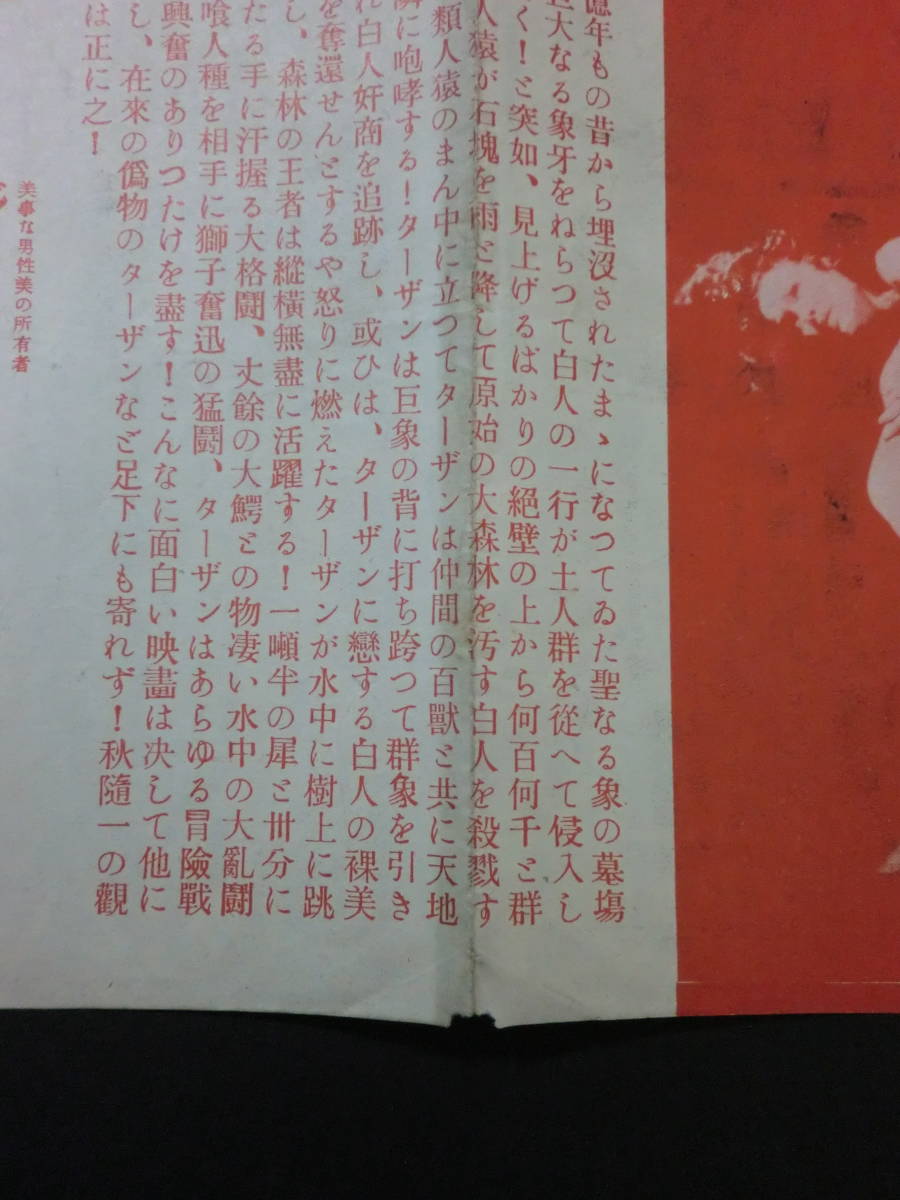 億年もの昔から埋沒されたまゝになつてゐた聖なる象の墓場
巨大なる象牙をねらつて白人の一行が土人群を從へて侵入し
く!と突如、見上げるばかりの絕壁の上から何百何千と群
人猿が石塊を雨と降して原始の大森林を汚す白人を殺戮す
類人猿のまん中に立つてターザンは仲間の百獸と共に天地
に咆哮する!ターザンは巨象の背に打ち跨つて群象を引き
れ白人奸商を追跡し、或ひは、ターザンに戀する白人の裸美
を奪還せんとするや怒りに燃えたターザンが水中に樹上に跳
し、森林の王者は縱橫無盡に活躍する!一噸半の犀と卅分に
たる手に汗握る大格鬪、丈餘の大鰐との物凄い水中の大亂鬪
喰人種を相手に獅子奮迅の猛鬪、ターザンはあらゆる冒險戰
興奮のありつたけを盡す!こんなに面白い映畫は決して他に
し、在來の僞物のターザンなど足下にも寄れず!秋隨一の觀
は正に之!
美事な男性美の所有者